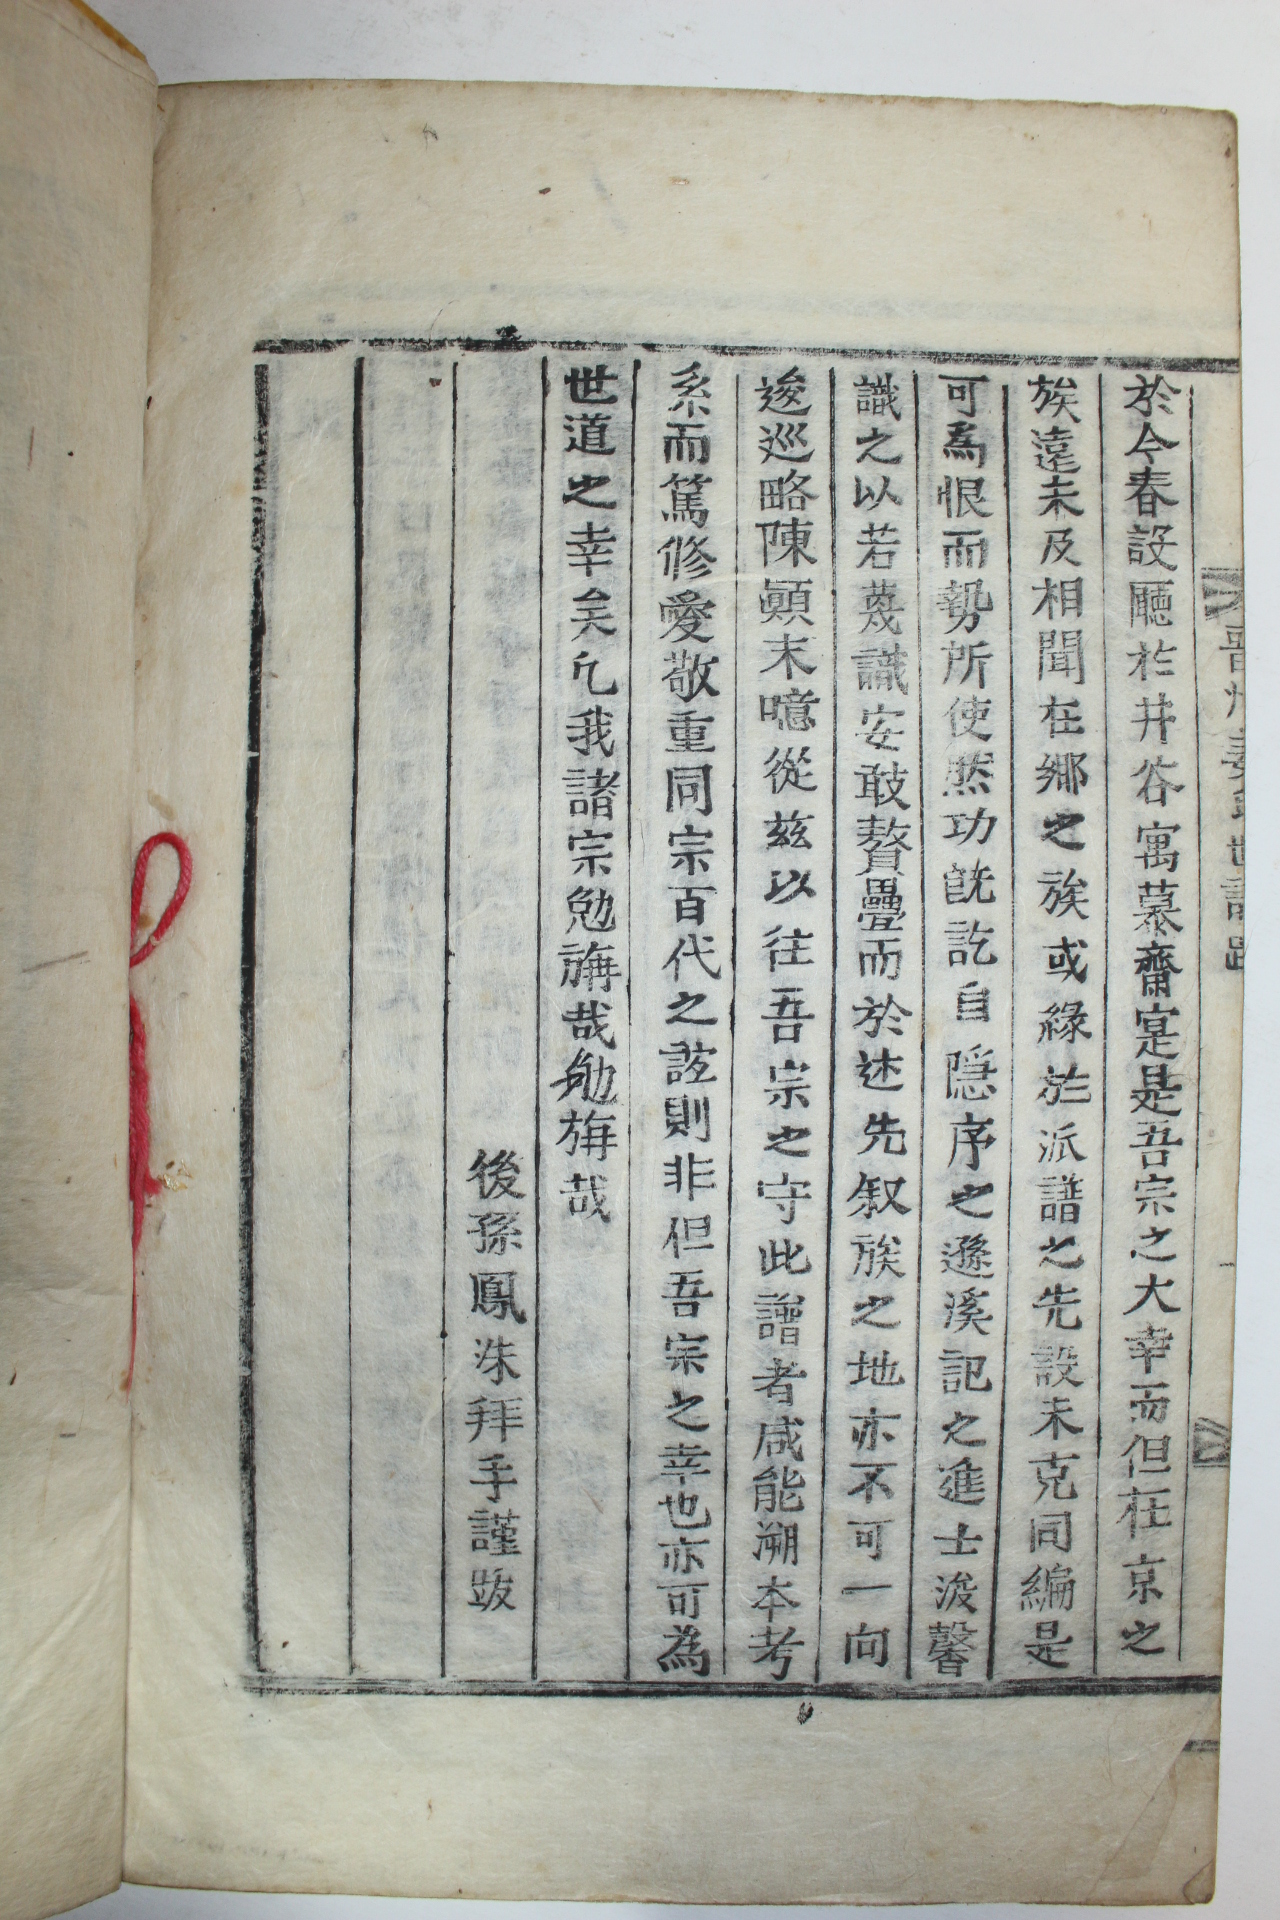 晋州姜氏世譜跋
於今春設廳於井谷寓慕齋寔是吾宗之大幸而但在京之
族遠未及相聞在鄉之族或緣於派譜之先設未克同編是
可爲恨而勢所使然功旣訖自隱序之遜溪記之進士浚馨
識之以若蔑識安敢贅疊而於述先叙族之地亦不可一向
逡巡略陳顚末噫從玆以往吾宗之守此譜者咸能溯本考
系而篤修愛敬重同宗百代之誼則非但吾宗之幸也亦可為
世道之幸矣凡我諸宗勉旃哉勉旃哉
後孫鳳洙拜手謹跋